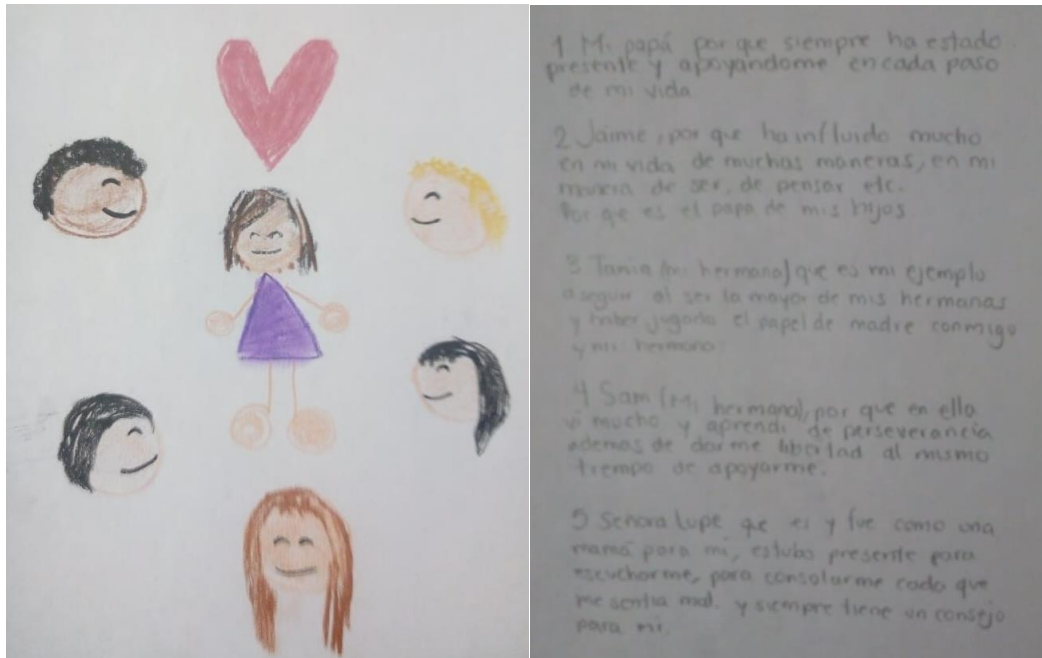 1 Mi papá por que siempre ha estado
presente y apoyandome en cada paso
de mi vida
2 Jaime, por que ha influido mucho
en mi vida de muchas maneras, en mi
manera de ser, de pensar etc.
Por qe es el papa de mis hijos
3 Tania (mi hermana) que es mi ejemplo
a seguir al ser la mayor de mis hermanas
y haber jugado el papel de madre conmigo
y mi hermano
4 Sam (Mi hermana), por que en ella
vi mucho y aprendi de perseverancia
ademas de darme libertad al mismo
tiempo de apoyarme.
5 Señora Lupe qe es y fue como una
mamá para mi, estubo presente para
escucharme, para consolarme cada que
me sentia mal. y siempre tiene un consejo
para mi.